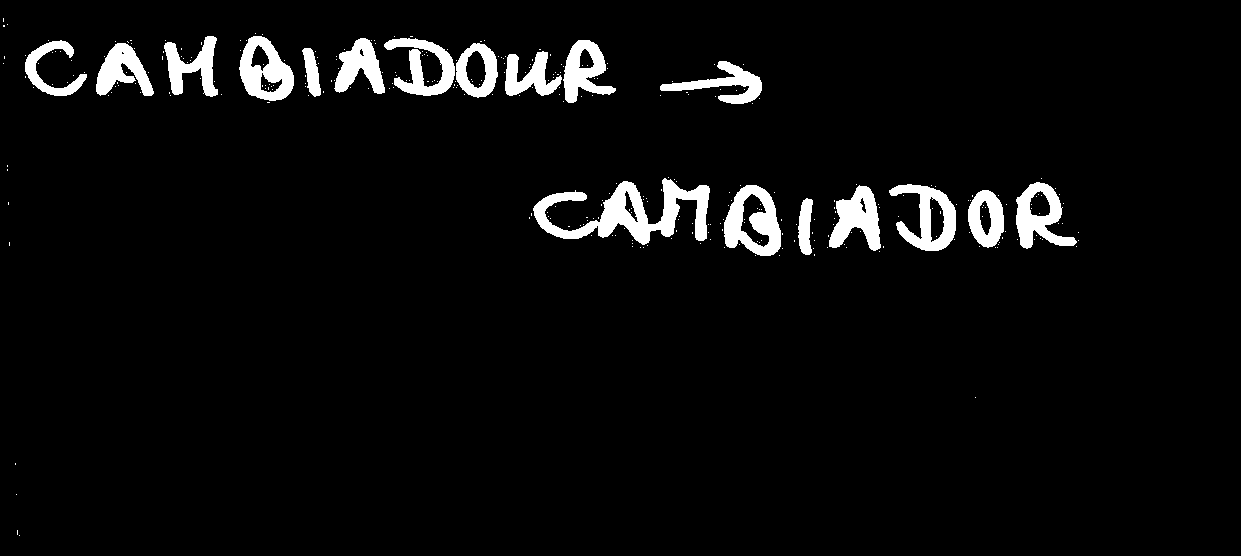 CAMBIADOUR →
CAMBIADOR